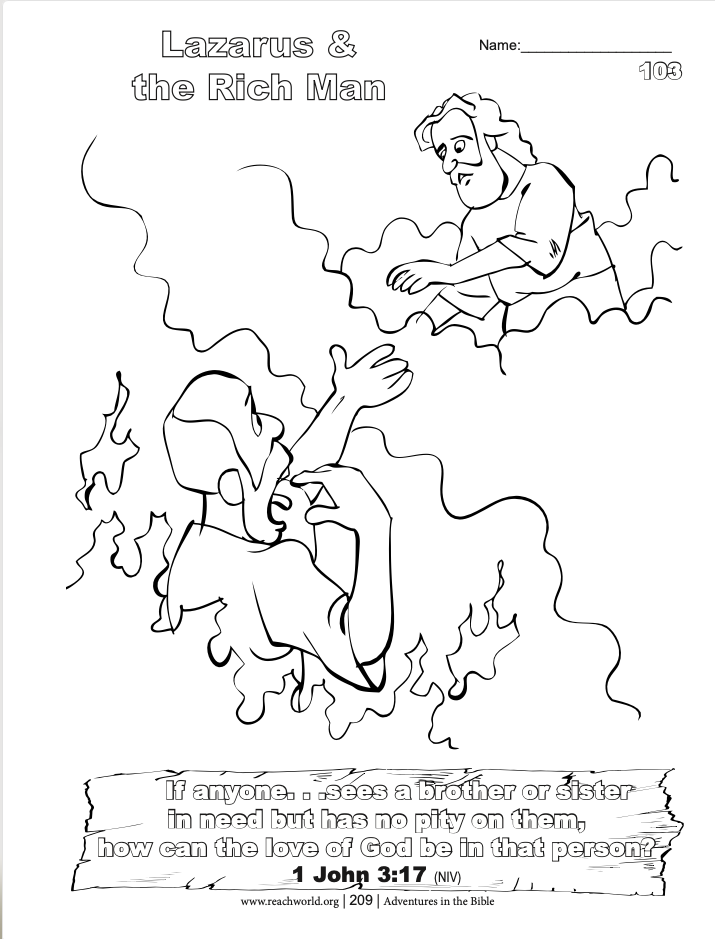 Lazarus &
the Rich Man
Name:___________________
103
If anyone. . .sees a brother or sister
in need but has no pity on them,
how can the love of God be in that person?
1 John 3:17 (NIV)
www.reachworld.org | 209 | Adventures in the Bible